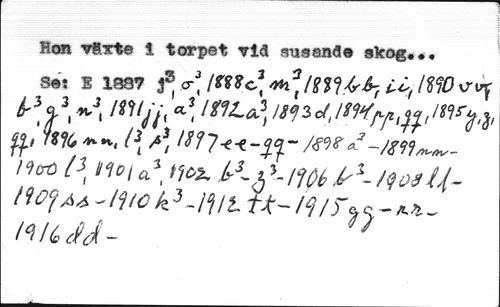 Hon växte i torpet vid susande skog...
Se: E 1887 j³, o³, 1888 c³, m³, 1889 bb, ii, 1890 vv,
b³, g³, n³, 1891 jj, a³, 1892 a³, 1893 d, 1894 pp, qq, 1895 y, z,
qq, 1896 nn, l³, s³, 1897 ee-qq- 1898 a³ - 1899 nn-
1900 l³, 1901 a³, 1902 b³-z³-1906 b³-1908 ll-
1909 ss-1910 k³-1912 tt-1915 gg-rr-
1916 dd-